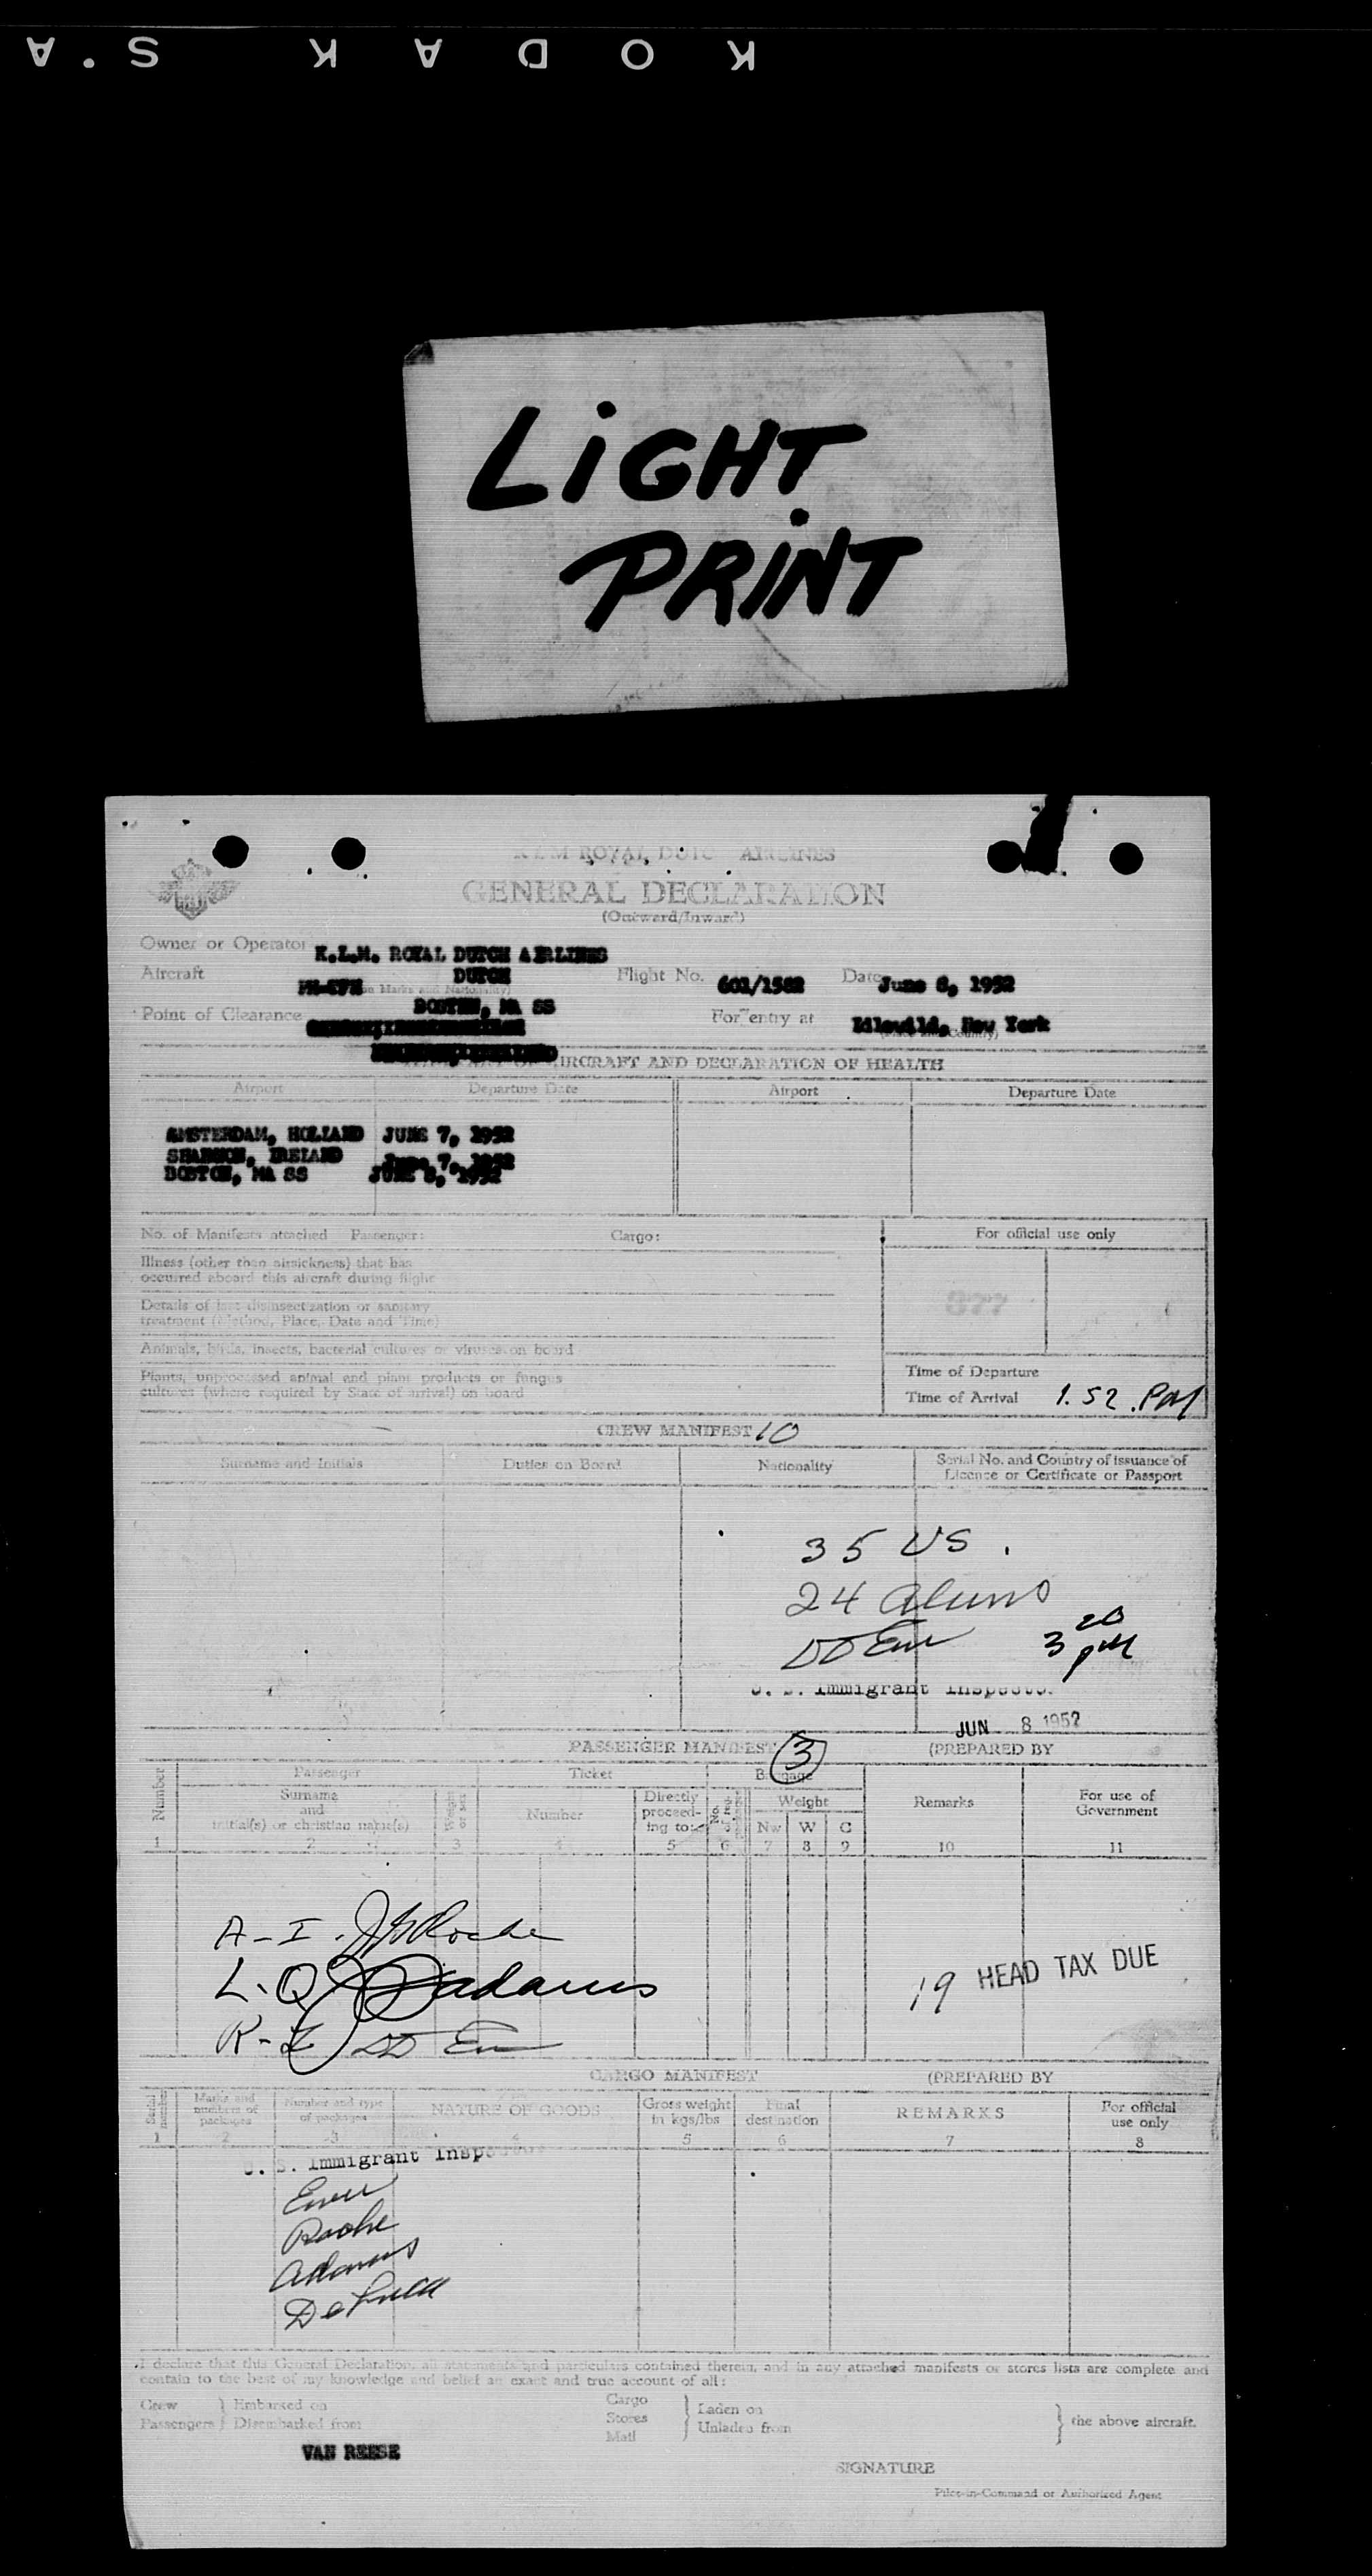 KODAK S.A
LIGHT
PRINT
ROYAL DUTC AIRLINES
GENERAL DECLARATION
(Outward/Inward)
Owner or Operator K.L.M. ROYAL DUTCH AIRLINES
Aircraft DUTCH Flight No. 601/1582 Date June 8, 1952
Marks and Nationality)
Point of Clearance BOSTON, MA SS For entry at Idlewild, New York
AIRCRAFT AND DECLARATION OF HEALTH
Airport Departure Date Airport Departure Date
AMSTERDAM, HOLLAND JUNE 7, 1952
SHANNON, IRELAND June 7, 1952
BOSTON, MA SS JUNE 8, 1952
No. of Manifests attached Passenger: Cargo: For official use only
Illness (other than airsickness) that has
occurred aboard this aircraft during flight
877
Details of last disinsectization or sanitary
treatment (Method, Place, Date and Time)
Animals, birds, insects, bacterial cultures or viruses on board
Plants, unprocessed animal and plant products or fungus
cultures (where required by State of arrival) on board
Time of Departure
Time of Arrival 1.52 .PM
CREW MANIFEST 10
Surname and Initials Duties on Board Nationality Serial No. and Country of issuance of
Licence or Certificate or Passport
35 US.
24 aliens
3 20 pm
U. S. Immigrant Inspector
JUN 8 1952
PASSENGER MANIFEST 3 (PREPARED BY
Number Passenger Ticket Baggage
Surname
and
initial(s) or christian name(s)
Weight or sex Number Directly
proceed-
ing to: No. Weight Remarks For use of
Government
Nw W C
1 2 3 4 5 6 7 8 9 10 11
A-I. Roche
L.Q Adams
19 HEAD TAX DUE
CARGO MANIFEST (PREPARED BY
Serial number Marks and
numbers of
packages Number and type
of packages NATURE OF GOODS Gross weight
in kgs/lbs Final
destination REMARKS For official
use only
1 2 3 4 5 6 7 8
U. S. Immigrant Inspectors
Roche
Adams
I declare that this General Declaration, all statements and particulars contained therein, and in any attached manifests or stores lists are complete and
contain to the best of my knowledge and belief an exact and true account of all:
Crew } Embarked on Cargo } Laden on
Passengers } Disembarked from Stores } Unladen from } the above aircraft.
Mail
VAN REESE
SIGNATURE
Pilot-in-Command or Authorized Agent